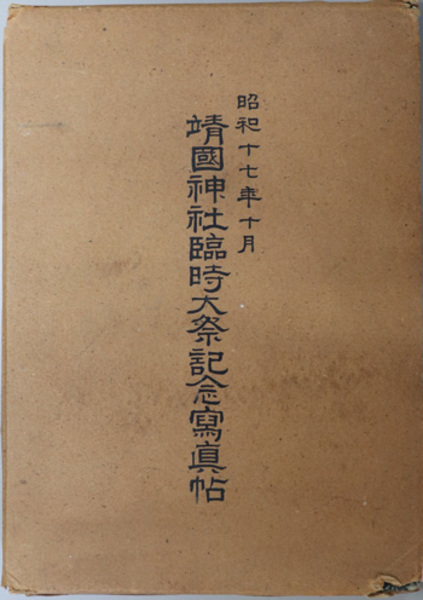 昭和十七年十月
靖國神社臨時大祭記念寫眞帖